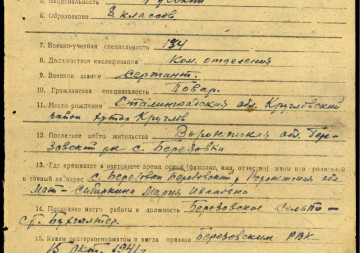 5. Национальность русский
6. Образование 8 классов
7. Военно-учетная специальность 134
8. Должностная квалификация Ком. отделения
9. Военное звание сержант.
10. Гражданская специальность Повар.
11. Место рождения Сталинградская обл. Кругловский
район хутор Круглов
12. Последнее место жительства Воронежская обл. Бере-
зовский р-н с. Березовка
13. Где проживает в настоящее время семья (фамилия, имя, отчество) жены или родителей
и точный их адрес с. Березовка Березовского р. Воронежская обл
Мать - Сибиркина Мария Ивановна
14. Последнее место работы и должность Березовское Сельпо -
ст. Бухгалтер.
15. Каким райвоенкоматом и когда призван Березовским РВК
13 Окт. 1941 г